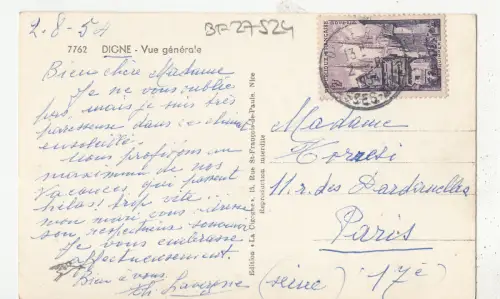 2-8-54
BF27524
7762 DIGNE - Vue générale
Bien chère Madame
Je ne vous oublie
pas, mais je suis très
paresseuse dans ce climat
ensoleillé.
Nous profitons au
maximum de nos
vacances que passent
hélas! trop vite.
mon mari vous
son respectueux souvenir
Je vous embrasse
affectueusement.
Bien à vous.
Edition « La Cigogne », 15, Rue St-François-de-Paule, Nice
Reproduction interdite
REPUBLIQUE FRANÇAISE
Madame
11. r. des Dardanelles
Paris
(seine) 17e